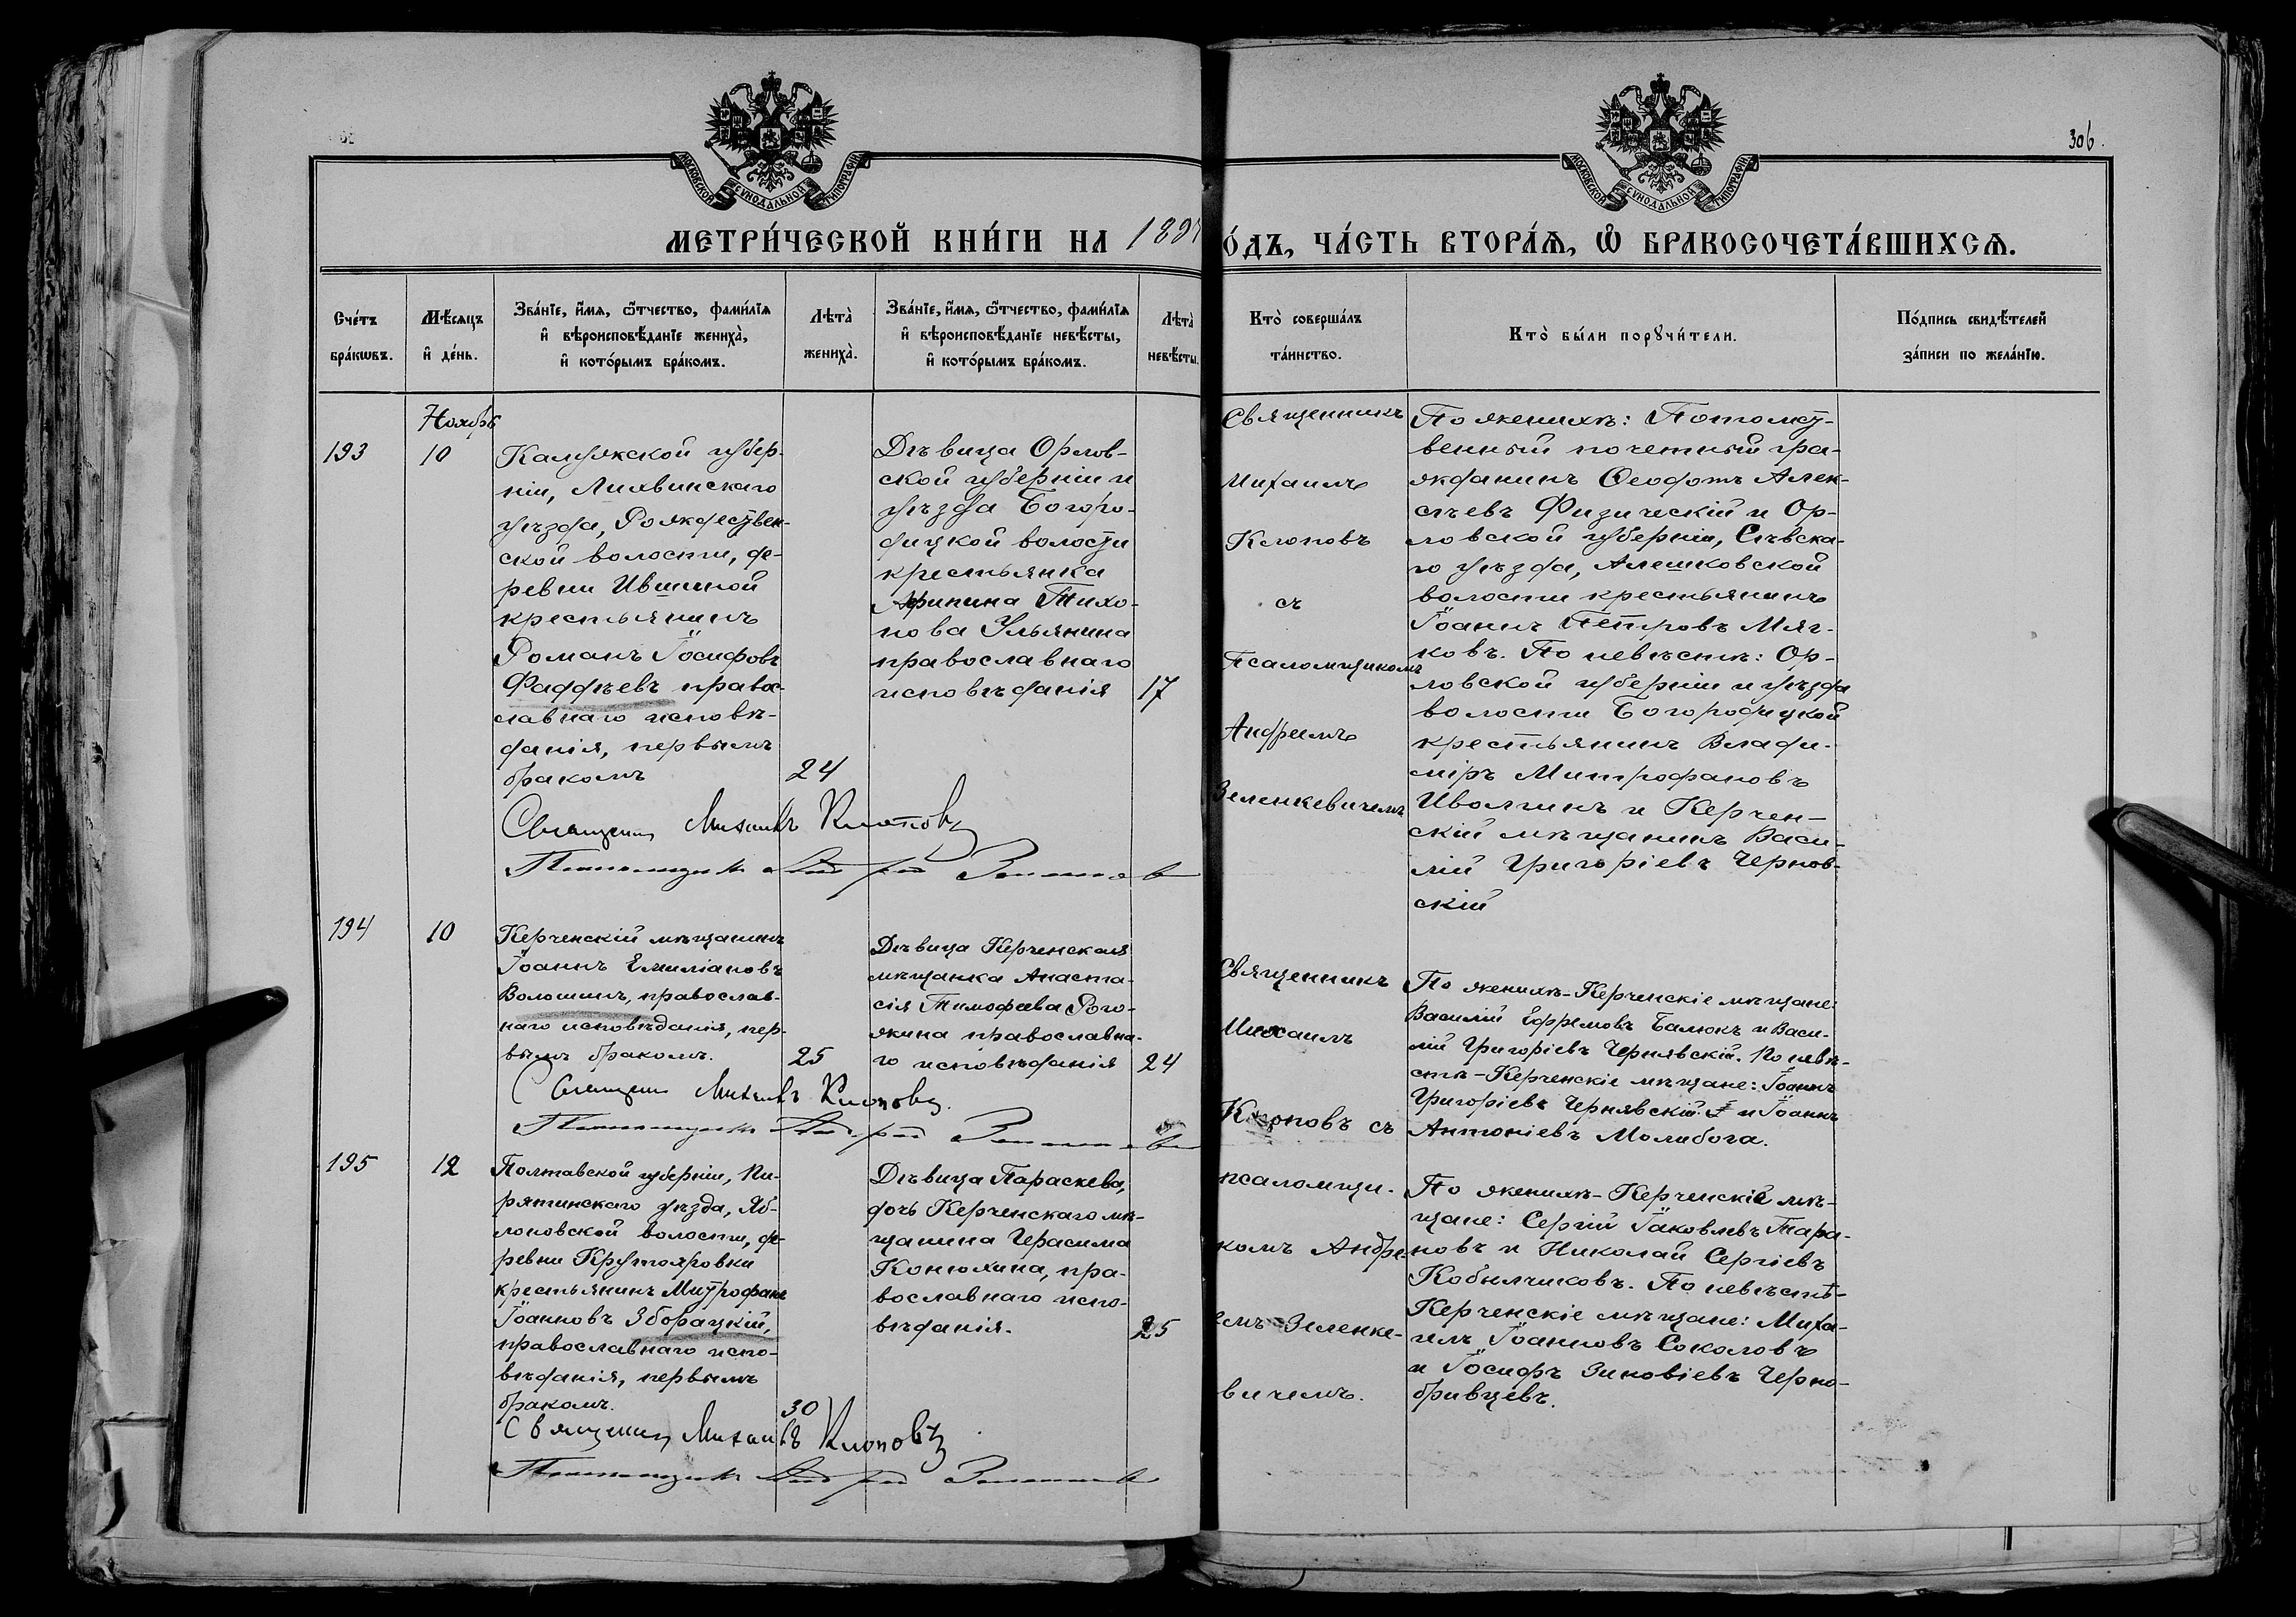 306.
МОСКОВСКОЙ СѴНОДАЛЬНОЙ ТИПОГРАФІИ
МОСКОВСКОЙ СѴНОДАЛЬНОЙ ТИПОГРАФІИ
МЕТРИ́ЧЕСКОЙ КНИ́ГИ НА 189
О́ДЪ, ЧА́СТЬ ВТОРА́Я, Ѽ БРАКОСОЧЕТА́ВШИХСЯ.
Сче́тъ бра́кѡвъ.
Мѣ́сяцъ и҆ де́нь.
Зва́нїе, и҆́мя, ѻ҆́тчество, фами́лїя
и҆ вѣроисповѣ́данїе жениха̀,
и҆ кото́рымъ бра́комъ.
Лѣта̀ жениха̀.
Зва́нїе, и҆́мя, ѻ҆́тчество, фами́лїя
и҆ вѣроисповѣ́данїе невѣ́сты,
и҆ кото́рымъ бра́комъ.
Лѣта̀ невѣ́сты.
Кто̀ соверша́лъ та́инство.
Кто̀ бы́ли порꙋчи́тели.
По́дпись свидѣ́телей за́писи по жела́нїю.
Ноябрь
193
10
Калужской губер-
ніи, Лихвинскаго
уѣзда, Рождествен-
ской волости, де-
ревни Ившиной
крестьянинъ
Романъ Іосифовъ
Фаддѣевъ правос-
лавнаго исповѣ-
данія, первымъ
бракомъ
24
Дѣвица Орлов-
ской губерніи и
уѣзда Богоро-
дицкой волости
крестьянка
Агрипина Тихо-
нова Ульянина
православнаго
исповѣданія
17
Священникъ
Михаилъ
Клоповъ
съ
Псаломщикомъ
Андреемъ
Зеленкевичемъ
По женихѣ: Потомст-
венный почетный гра-
жданинъ Ѳеодотъ Алек-
сѣевъ Физическій и Ор-
ловской губерніи, Сѣвска-
го уѣзда, Алешковской
волости крестьянинъ
Іоаннъ Петровъ Мяг-
ковъ. По невѣстѣ: Ор-
ловской губерніи и уѣзда
волости Богородицкой
крестьянинъ Влади-
міръ Митрофановъ
Иволгинъ и Керчен-
скій мѣщанинъ Васи-
лій Григоріевъ Чернов-
скій
Священникъ Михаилъ Клоповъ
Псаломщикъ Андрей
194
10
Керченскій мѣщанинъ
Іоаннъ Емиліановъ
Волошинъ, православ-
наго исповѣданія, пер-
вымъ бракомъ.
25
Дѣвица Керченская
мѣщанка Анаста-
сія Тимофѣева Рого-
жина православна-
го исповѣданія
24
Священникъ
Михаилъ
Клоповъ съ
По женихѣ - Керченскіе мѣщане:
Василій Ефремовъ Балюкъ и Васи-
лій Григоріевъ Чернявскій. По невѣ-
стѣ - Керченскіе мѣщане: Іоаннъ
Григоріевъ Чернявскій и Іоаннъ
Антоніевъ Молибога.
Священникъ Михаилъ Клоповъ
Псаломщикъ Андрей
195
12
Полтавской губерніи, Пи-
рятинскаго уѣзда, Яб-
лоновской волости, де-
ревни Крутояровки
крестьянинъ Митрофанъ
Іоанновъ Зборацкій,
православнаго испо-
вѣданія, первымъ
бракомъ.
30
Дѣвица Параскева,
дочь Керченскаго мѣ-
щанина Герасима
Конюхина, пра-
вославнаго испо-
вѣданія.
25
псаломщи-
комъ Андре-
емъ Зеленке-
вичемъ.
По женихѣ - Керченскіе мѣ-
щане: Сергій Іаковлевъ Тара-
новъ и Николай Сергіевъ
Кобылчиковъ. По невѣстѣ -
Керченскіе мѣщане: Миха-
илъ Іоанновъ Соколовъ
и Іосифъ Зиновіевъ Черно-
бривцевъ.
Священникъ Михаилъ Клоповъ
Псаломщикъ Андрей